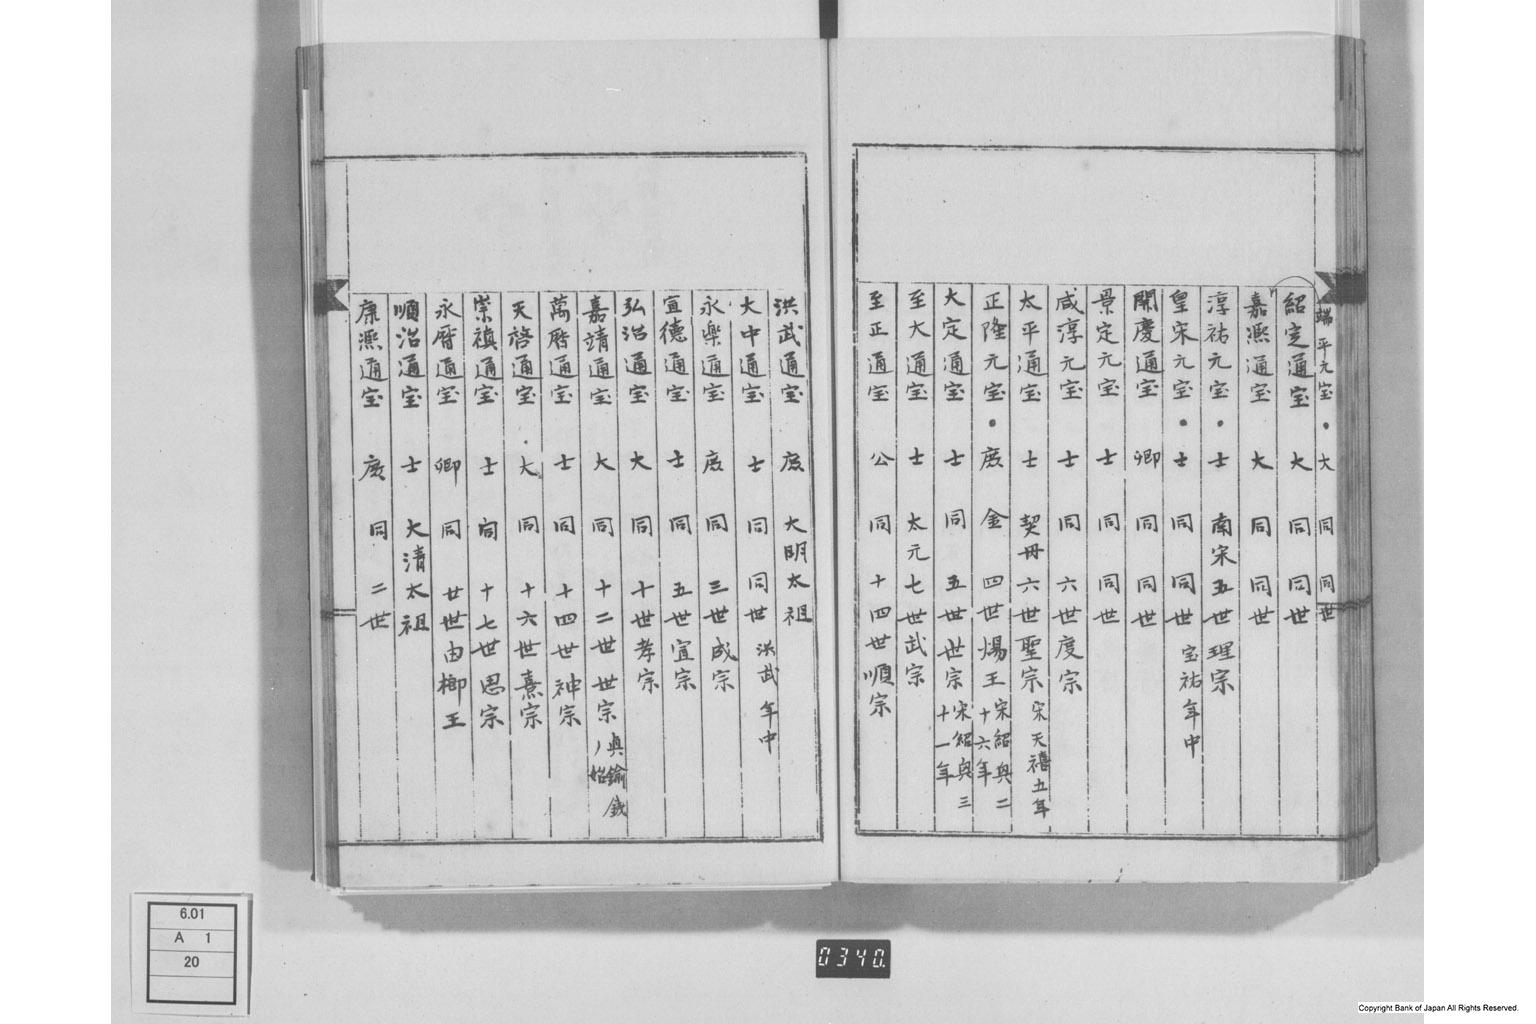 端平元宝・ 大 同 同世
紹定通宝 大 同 同世
嘉熙通宝 大 同 同世
淳祐元宝・ 士 南宋五世理宗
皇宋元宝・ 士 同 同世 宝祐年中
開慶通宝 卿 同 同世
景定元宝 士 同 同世
咸淳元宝 士 同 六世度宗
太平通宝 士 契丹六世聖宗 宋天禧五年
正隆元宝・ 庶 金 四世煬王 宋紹興二十六年
大定通宝 士 同 五世世宗 宋紹興三十一年
至大通宝 士 太元七世武宗
至正通宝 公 同 十四世順宗
洪武通宝 庶 大明太祖
大中通宝 士 同 同世 洪武年中
永楽通宝 庶 同 三世成宗
宣徳通宝 士 同 五世宣宗
弘治通宝 大 同 十世孝宗
嘉靖通宝 大 同 十二世世宗 真鍮銭ノ始
萬暦通宝 士 同 十四世神宗
天啓通宝 大 同 十六世熹宗
崇禎通宝 士 同 十七世思宗
永暦通宝 卿 同 廿世由榔王
順治通宝 士 大清太祖
康熙通宝 庶 同 二世
6.01
A 1
20
0340
Copyright Bank of Japan All Rights Reserved.